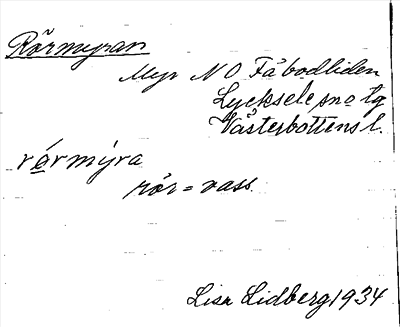 Rörmyran
Myr N O Fäbodliden
Lycksele sno lg
Västerbottens l.
rórmýra
rör = vass
Lisa Lidberg 1934